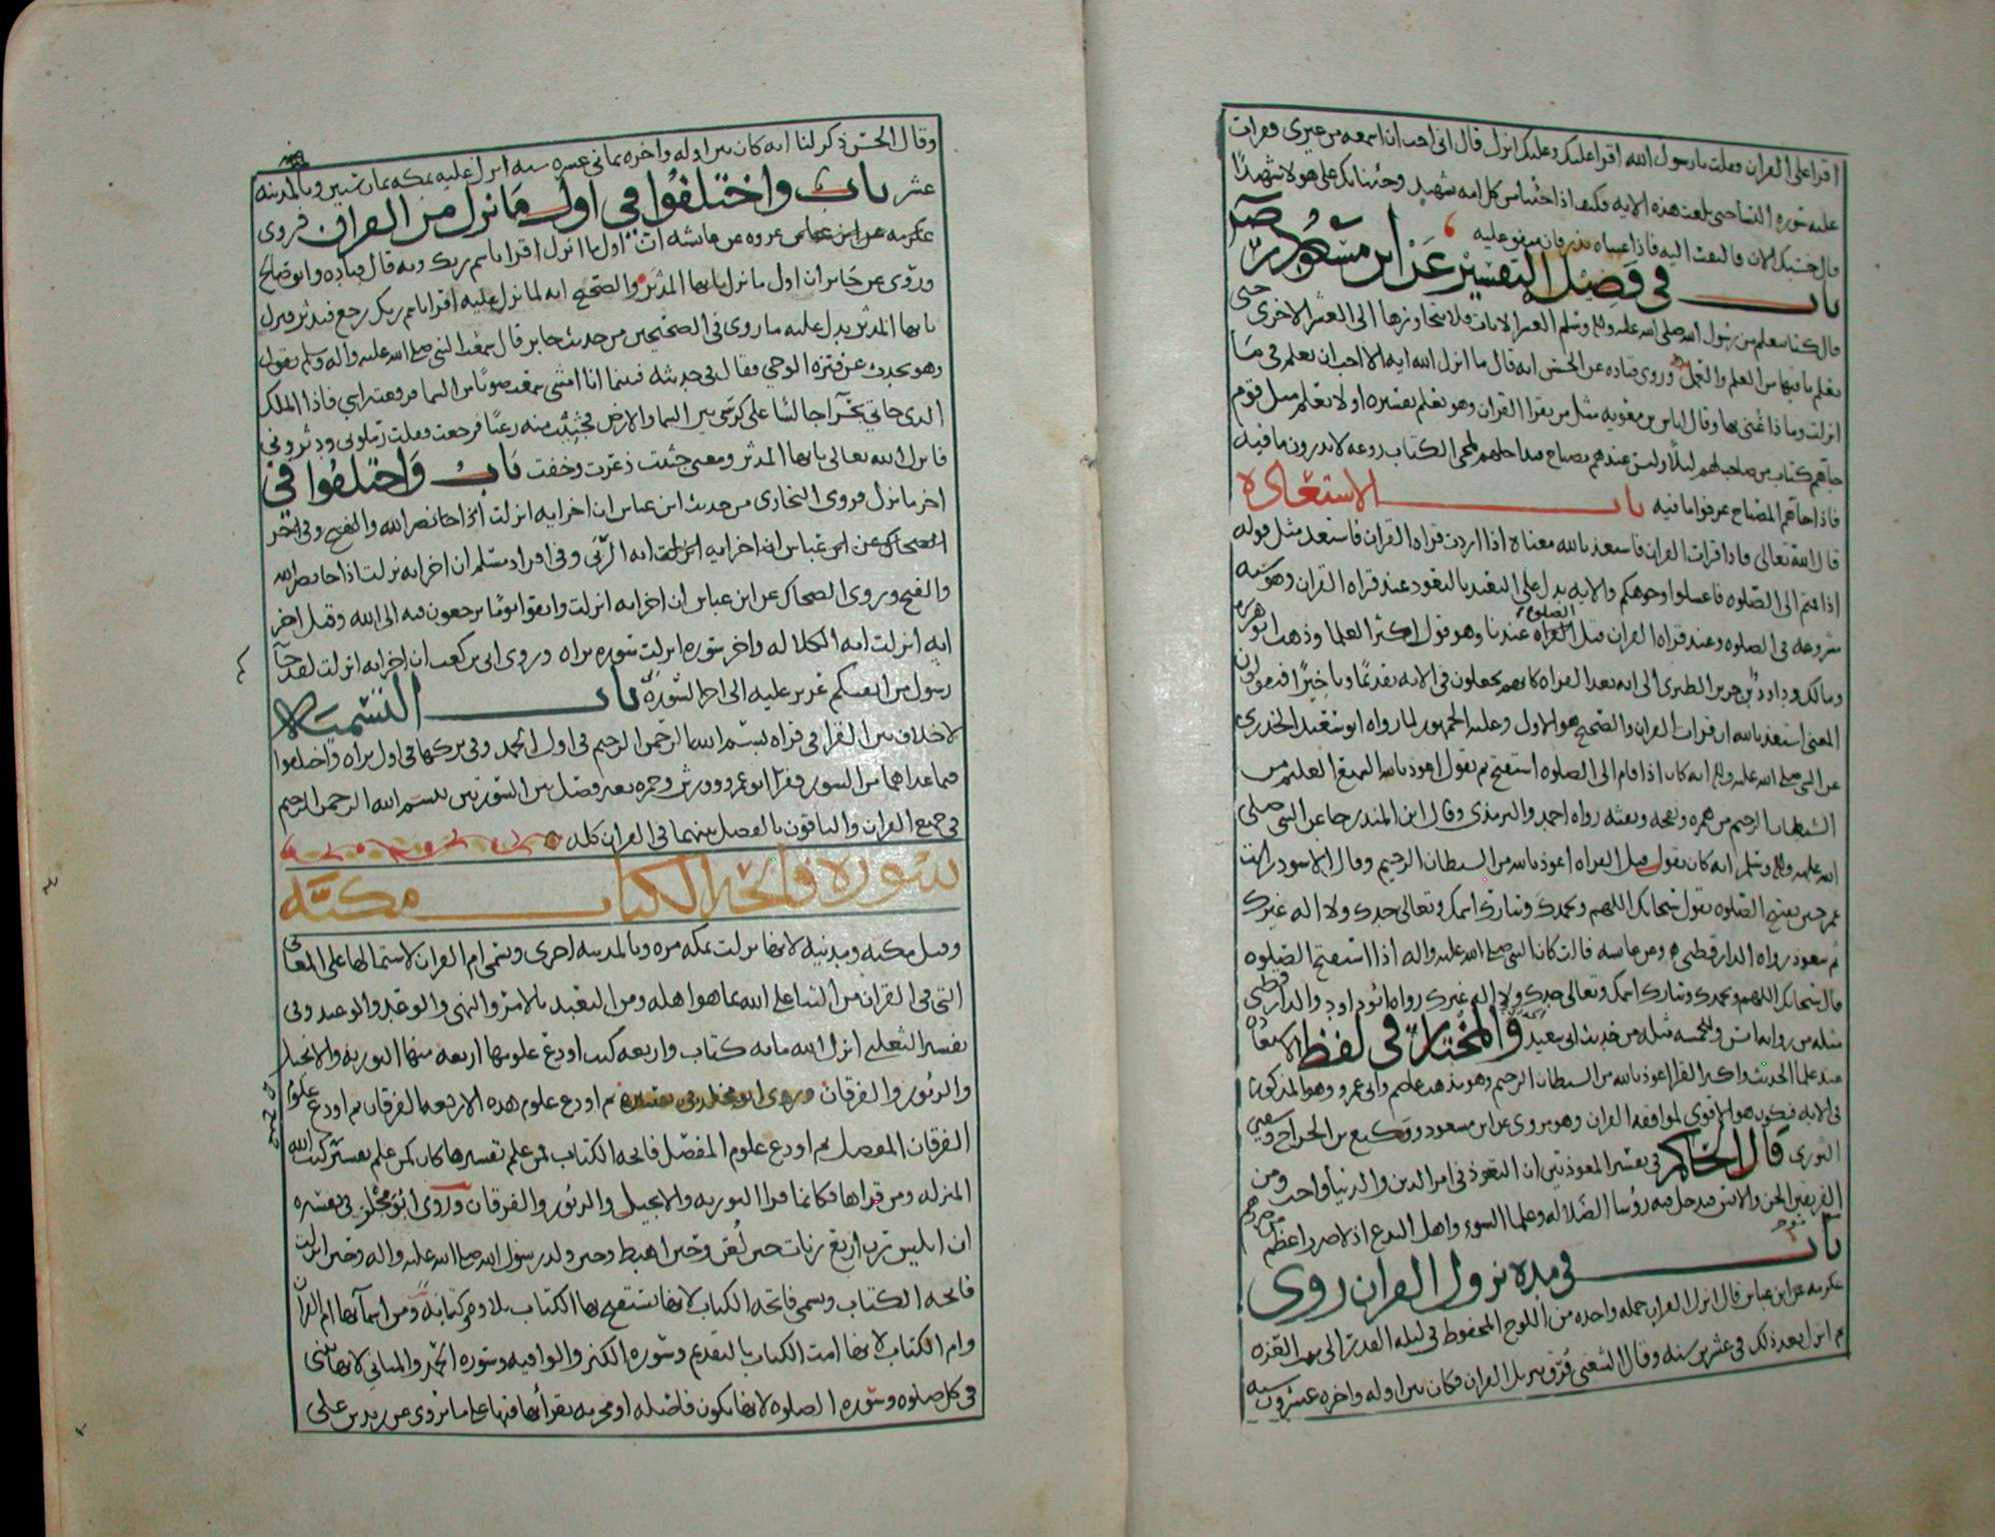 اقرا على القران فقلت يا رسول الله اقرا عليك وعليك انزل قال انى احب ان اسمعه من غيرى فقرات
عليه سوره النسا حتى بلغت هذه الايه فكيف اذا جئنا من كل امه بشهيد وجئنا بك على هولا شهيدًا
قال حسبك الان فالتفت اليه فاذا عيناه تذرفان متفق عليه
باب فى فَضِيْل التفسِيْر عَن ابن مسْعُود رضى
قال كنا نتعلم من رسول الله صلى الله عليه واله وسلم العشر الايات فلا نتجاوزها الى العشر الاخرى حتى
نعلم ما فيها من العلم والعمل وروى قتاده عن الحسن انه قال ما انزل الله ايه الا احب ان نعلم فى مَا
انزلت وما ذا عُنى بها وقال اياس بن معويه مثل من يقرا القران وهو يعلم تفسيره او لا يعلم مثل قوم
جاهم كتاب من صاحبهم ليلًا وليس عندهم مصباح فتداخلهم لمجى الكتاب روعه لا يدرون ما فيه
فاذا جاهم المصباح عرفوا ما فيه باب الاستعاذه
قال الله تعالى فاذا قرات القران فاستعذ بالله معناه اذا اردت قراه القران فاستعذ مثل قوله
اذا قمتم الى الصلوه فاغسلوا وجوهكم والايه يدل على التقيد بالتعوذ عند قراه القران وهو سنه
مشروعه فى الصلوه وعند قراه القران قبل القراه الصلوه عندنا وهو قول اكثر العلما وذهب ابو هريره
ومالك وداود بن جرير الطبرى الى انه بعد القراه كانهم يجعلون فى الايه تقديمًا وتاخيرًا فيقولون
المعنى استعذ بالله اذ قرات القران والصحيح هو الاول وعليه الجمهور لما رواه ابو سعيد الخدرى
عن النبى صلى الله عليه واله انه كان اذا قام الى الصلوه استفتح ثم يقول اعوذ بالله السميع العليم من
الشيطان الرجيم من همزه ونفخه ونفثه رواه احمد والترمذى وقال ابن المنذر جا عن النبى صلى
الله عليه واله وسلم انه كان يقول قبل القراه اعوذ بالله من الشيطان الرجيم وقال الاسود رايت
عمر حين يفتتح الصلوه يقول سبحانك اللهم وبحمدك وتبارك اسمك وتعالى جدك ولا اله غيرك
ثم يتعوذ رواه الدارقطنى وعن عايشه قالت كان النبى صلى الله عليه واله اذا استفتح الصلوه
قال سبحانك اللهم وبحمدك وتبارك اسمك وتعالى جدك ولا اله غيرك رواه ابو داود والدارقطنى
مثله من روايه انس وللخمسه مثله من حديث ابى سعيد وَالمخْتار فى لفظ الاستعاذه
عند علما الحديث واكثر القرا اعوذ بالله من الشيطان الرجيم وهو مذهب عاصم وابى عمرو وهو المذكور
فى الايه فيكون هو الاقوى لموافقه القران وهو مروى عن ابن مسعود ووكيع بن الجراح وسفين
الثورى قال الحاكم فى تفسير المعوذتين ان التعوذ فى امر الدين والدنيا واجب ومن
الفريقين الجن والانس فيدخل فيه رؤسا الضلاله وعلما السوء واهل البدع اذ لا ضر اعظم من ضرهم
باب فى مده نزول القران روى
عكرمه عن ابن عباس قال انزل القران جمله واحده من اللوح المحفوظ فى ليله القدر الى بيت العزه
ثم انزل بعد ذلك فى عشرين سنه وقال الشعبى فرق تنزيل القران فكان بين اوله واخره عشرون سنه
وقال الحسن ذكر لنا انه كان بين اوله واخره ثمانى عشره سنه انزل عليه بمكه ثمان سنين وبالمدينه
عشر باب واختلفُوا فى اول مَا نزل من القران فروى
عكرمه عن ابن عباس عروه عن عايشه ان اول ما انزل اقرا باسم ربك وبه قال قتاده وابو صالح
وروى عن جابر ان اول ما نزل يا يها المدثر والصحيح انه لما نزل عليه اقرا باسم ربك رجع فتدثر فنزل
يا يها المدثر يدل عليه ما روى فى الصحيحين من حديث جابر قال سمعت النبى صلى الله عليه واله وسلم يقول
وهو يحدث عن فترة الوحى فقال فى حديثه فبينما انا امشى سمعت صوتًا من السما فرفعت راسى فاذا الملك
الذى جانى بحرآ جالسًا على كرسى بين السما والارض فجُئِثت منه رعبًا فرجعت فقلت زملونى ودثرونى
فانزل الله تعالى يا يها المدثر ومعنى جئثت ذعرت وخفت بَابُ وَاختلفوا فى
اخر ما نزل فروى البخارى من حديث ابن عباس ان اخر ايه انزلت اذا جا نصر الله والفتح وفى اخر
الضحاك عن ابن عباس ان اخر ايه انزلت ايه الربى وفى افراد مسلم ان اخر ايه نزلت اذا جا نصر الله
والفتح وروى الضحاك عن ابن عباس ان اخر ايه انزلت واتقوا يومًا ترجعون فيه الى الله وقيل اخر
ايه انزلت ايه الكلاله واخر سوره انزلت سوره براه وروى ابى بن كعب ان اخر ايه انزلت لقد جآ
رسول من انفسكم عزيز عليه الى اخر السوره باب التسْميَه
لا خلاف بين القرا فى قراه بسم الله الرحمن الرحيم فى اول الحمد وفى تركها فى اول براه واختلفوا
فيما عداهما من السور فقرا ابو عمرو وورش وحمزه بغير فصل بين السورتين ببسم الله الرحمن الرحيم
فى جميع القران والباقون بالفصل بينهما فى القران كله
سُوره فاتحه الكتاب مكيَّه
وقيل مكيه ومدنيه لانها نزلت بمكه مره وبالمدينه اخرى وتسمى ام القران لاشتمالها على المعانى
التى فى القران من الثنا على الله بما هو اهله ومن التعبد بالامر والنهى والوعد والوعيد وفى
تفسير الثعلبى انزل الله مايه كتاب واربعه كتب اودع علومها اربعه منها التوريه والانجيل
والزبور والفرقان ثم اودع علوم هذه الاربعه الفرقان ثم اودع علوم
الفرقان المفصل ثم اودع علوم المفصل فاتحه الكتاب فمن علم تفسيرها كان كمن علم تفسير كتب الله
المنزله ومن قراها فكانما قرا التوريه والانجيل والزبور والفرقان وروى ابو مخلد فى تفسيره
ان ابليس ترب اربع رنات حين لُعن وحين اهبط وحين ولد رسول الله صلى الله عليه واله وحين انزلت
فاتحه الكتاب وتسمى فاتحه الكتاب لانها تستفتح بها الكتاب تلاوه وكتابه ومن اسمآيها ام القران
وام الكتاب لانها امت الكتاب بالتقديم وسوره الكنز والوافيه وسوره الحمد والمثانى لانها تثنى
فى كل صلوه وسوره الصلوه لانها تكون فاضله او مجزيه بقرأتها فيها على ما نروى عن زيد بن على